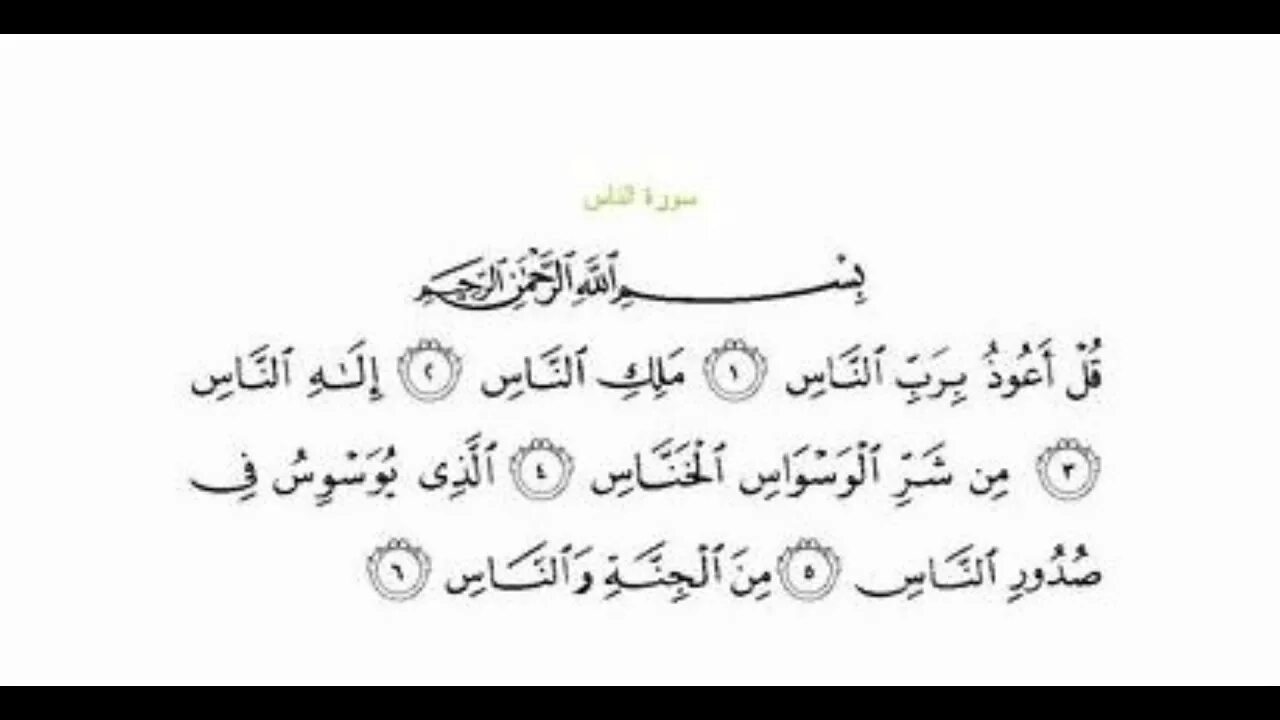 سورة الناس
بِسْمِ ٱللَّهِ ٱلرَّحْمَٰنِ ٱلرَّحِيمِ
قُلْ أَعُوذُ بِرَبِّ ٱلنَّاسِ ١ مَلِكِ ٱلنَّاسِ ٢ إِلَٰهِ ٱلنَّاسِ
٣ مِن شَرِّ ٱلْوَسْوَاسِ ٱلْخَنَّاسِ ٤ ٱلَّذِى يُوَسْوِسُ فِى
صُدُورِ ٱلنَّاسِ ٥ مِنَ ٱلْجِنَّةِ وَٱلنَّاسِ ٦